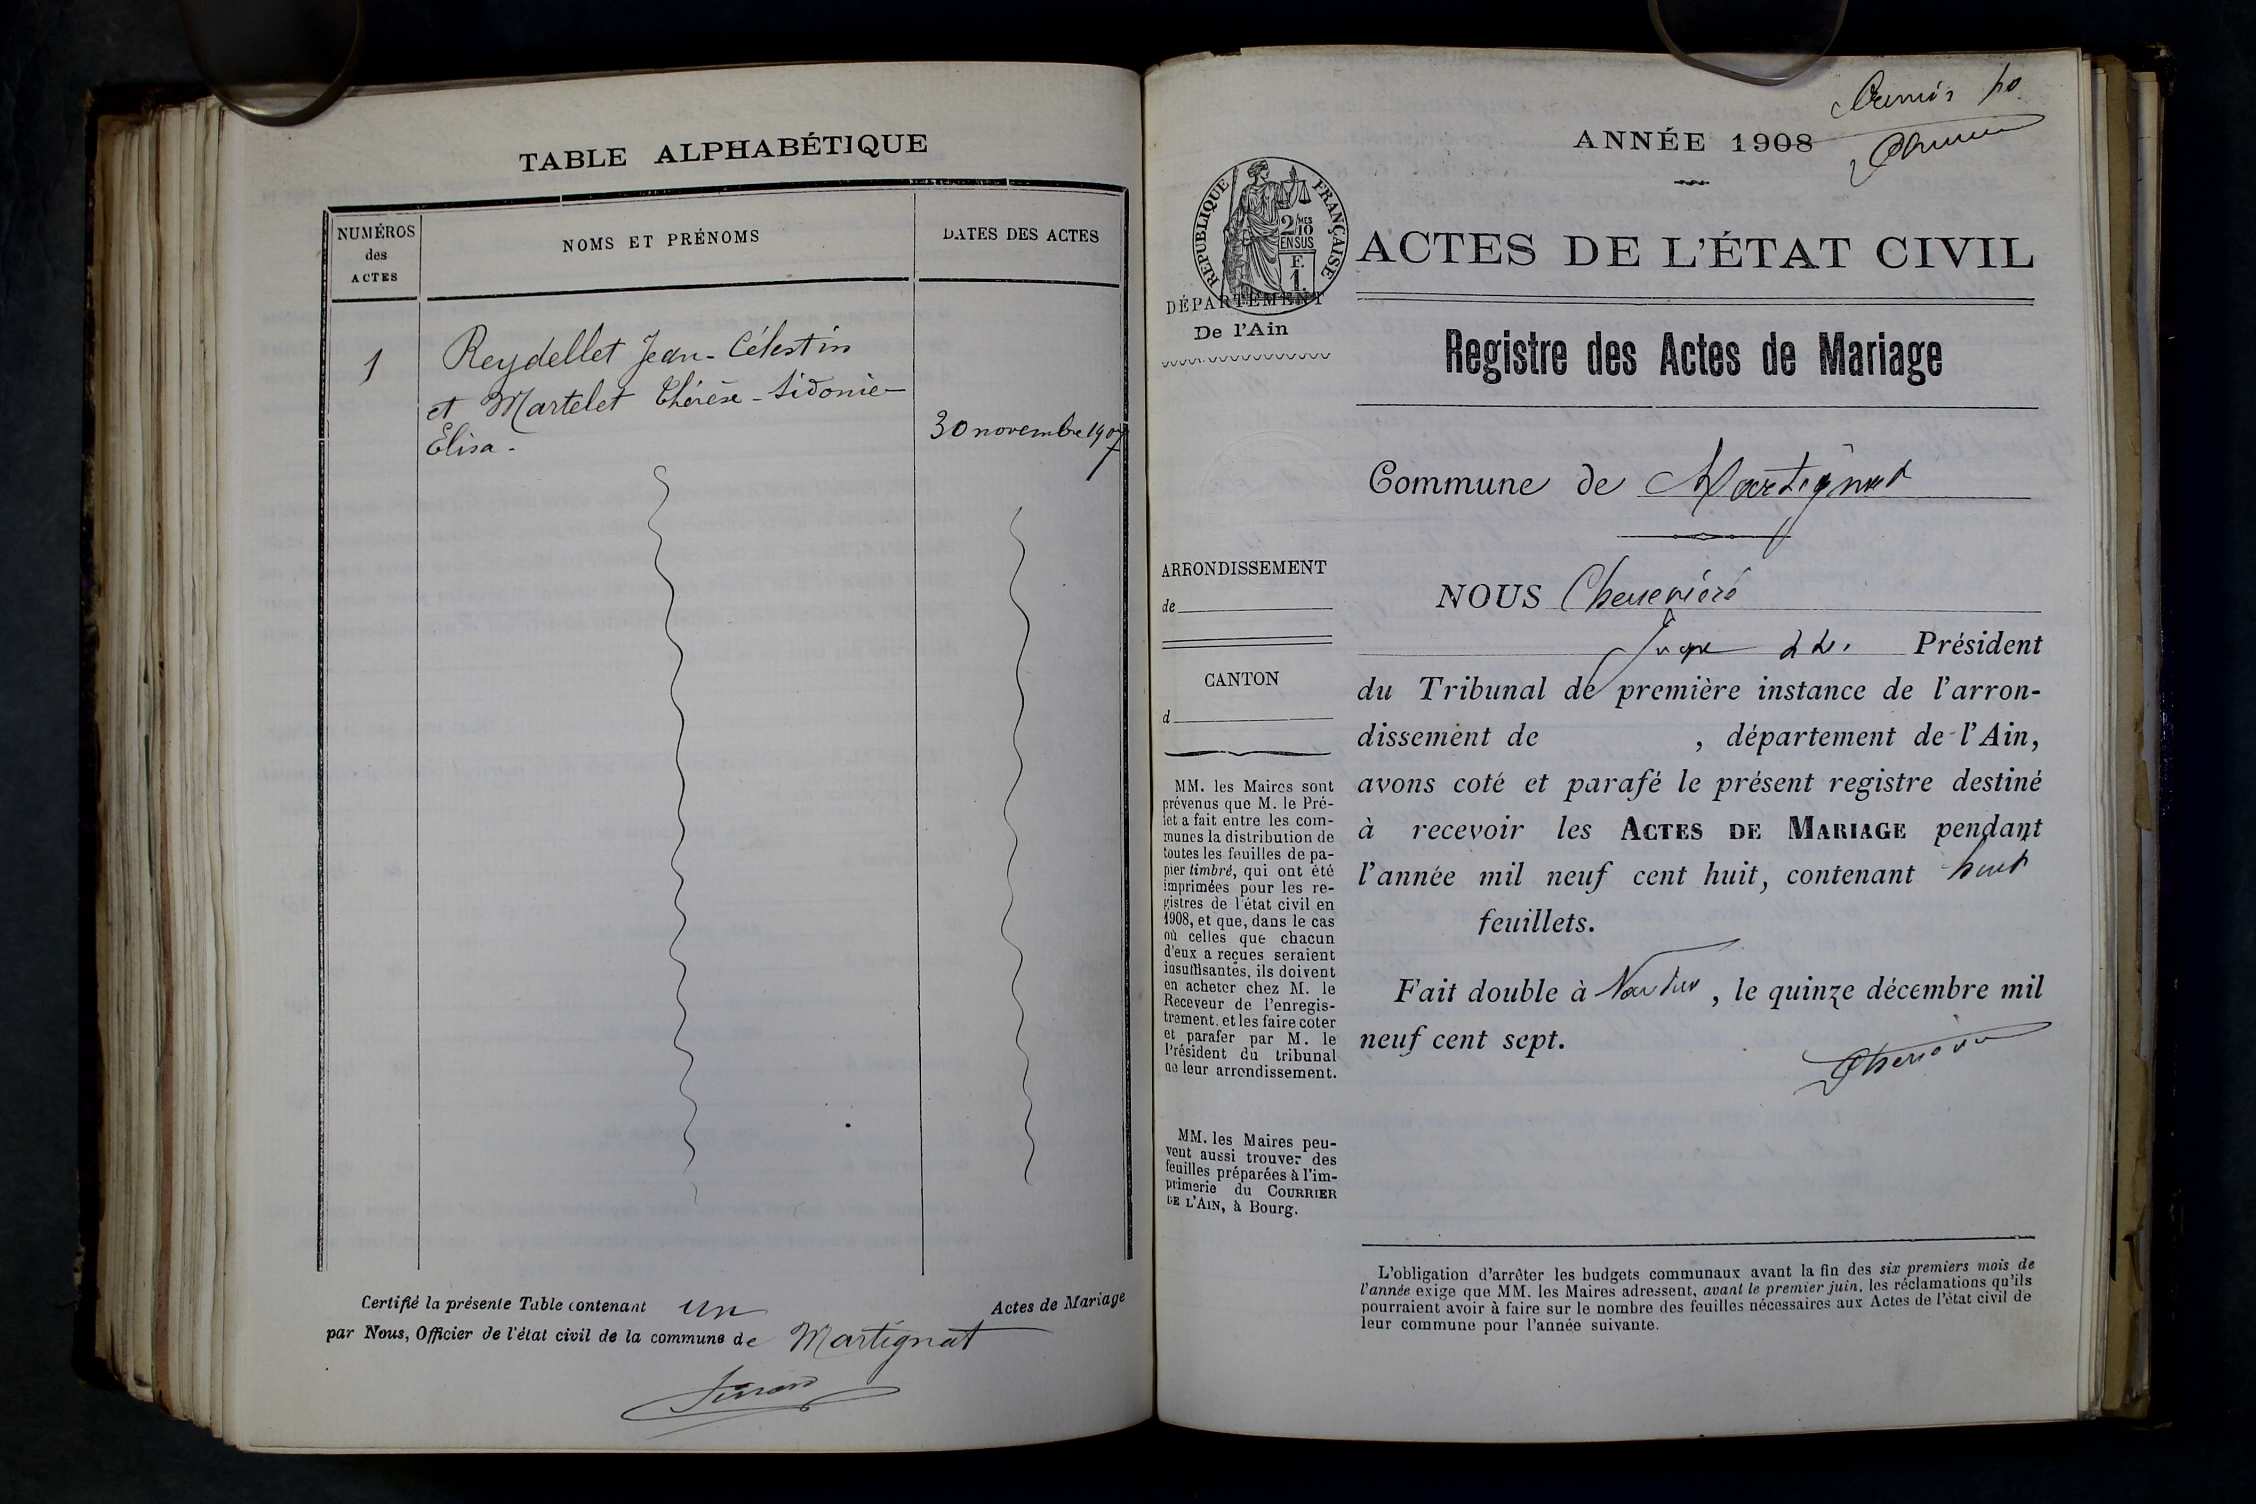 TABLE ALPHABÉTIQUE
NUMÉROS
des
ACTES
NOMS ET PRÉNOMS
DATES DES ACTES
1
Reydellet Jean-Célestin
et Martelet Thérèse-Sidonie
Elisa.
30 novembre 1907
Certifié la présente Table contenant un Actes de Mariage
par Nous, Officier de l'état civil de la commune de Martignat
ANNÉE 1908
RÉPUBLIQUE FRANÇAISE
2/10 MES
EN SUS
F.
1.
DÉPARTEMENT
De l'Ain
ARRONDISSEMENT
de
CANTON
d
MM. les Maires sont
prévenus que M. le Pré-
fet a fait entre les com-
munes la distribution de
toutes les feuilles de pa-
pier timbré, qui ont été
imprimées pour les re-
gistres de l'état civil en
1908, et que, dans le cas
où celles que chacun
d'eux a reçues seraient
insuffisantes, ils doivent
en acheter chez M. le
Receveur de l'enregis-
trement, et les faire coter
et parafer par M. le
Président du tribunal
de leur arrondissement.
MM. les Maires peu-
vent aussi trouver des
feuilles préparées à l'im-
primerie du COURRIER
DE L'AIN, à Bourg.
ACTES DE L'ÉTAT CIVIL
Registre des Actes de Mariage
Commune de Martignat
NOUS
Juge Président
du Tribunal de première instance de l'arron-
dissement de , département de l'Ain,
avons coté et parafé le présent registre destiné
à recevoir les ACTES DE MARIAGE pendant
l'année mil neuf cent huit, contenant huit
feuillets.
Fait double à Nantua, le quinze décembre mil
neuf cent sept.
L'obligation d'arrêter les budgets communaux avant la fin des six premiers mois de
l'année exige que MM. les Maires adressent, avant le premier juin, les réclamations qu'ils
pourraient avoir à faire sur le nombre des feuilles nécessaires aux Actes de l'état civil de
leur commune pour l'année suivante.